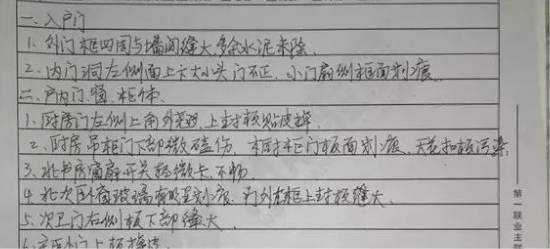 一、入户门
1. 外门框四周与墙间缝大多余水泥未除.
2. 内门洞左侧面上大小头门不正, 小门扇侧框面划痕
二、户内门、窗、柜体
1. 厨房门左侧上角外 上封板贴皮
2. 厨房吊柜门下部微磕伤、 橱柜门板面划痕、 污染
3. 北书房窗扇开关轻微卡、不畅
4. 北次卧窗玻璃有明显划痕, 门外框上封板缝大
5. 次卫门右侧板下部缝大
第一联业主联